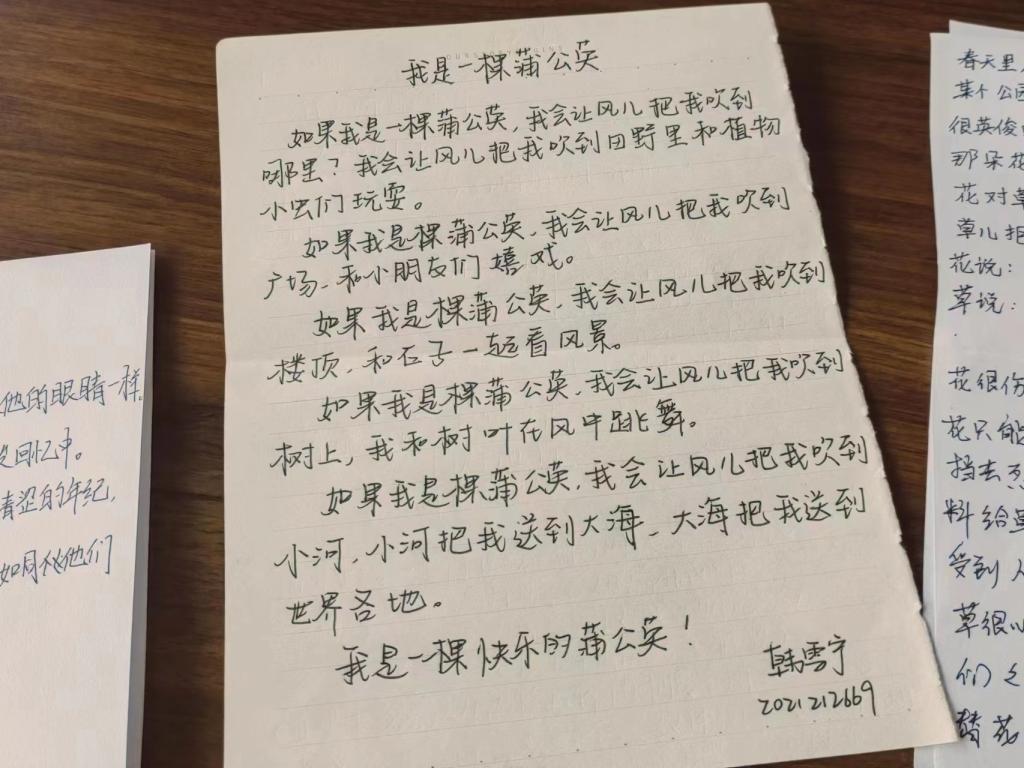 我是一棵蒲公英
如果我是一棵蒲公英，我会让风儿把我吹到
哪里？我会让风儿把我吹到田野里和植物
小虫们玩耍。
如果我是棵蒲公英，我会让风儿把我吹到
广场、和小朋友们嬉戏。
如果我是棵蒲公英，我会让风儿把我吹到
楼顶，和石子一起看风景。
如果我是棵蒲公英，我会让风儿把我吹到
树上，我和树叶在风中跳舞。
如果我是棵蒲公英，我会让风儿把我吹到
小河，小河把我送到大海、大海把我送到
世界各地。
我是一棵快乐的蒲公英！
韩雪宁
2021212669
他的眼睛一样
回忆中。
青涩的年纪，
他们
春天里
某个公园
很英俊
那朵花
花对草
草儿把
花说：
草说：
花很伤
花只能
挡去
料给
受到人
草很
们
替花